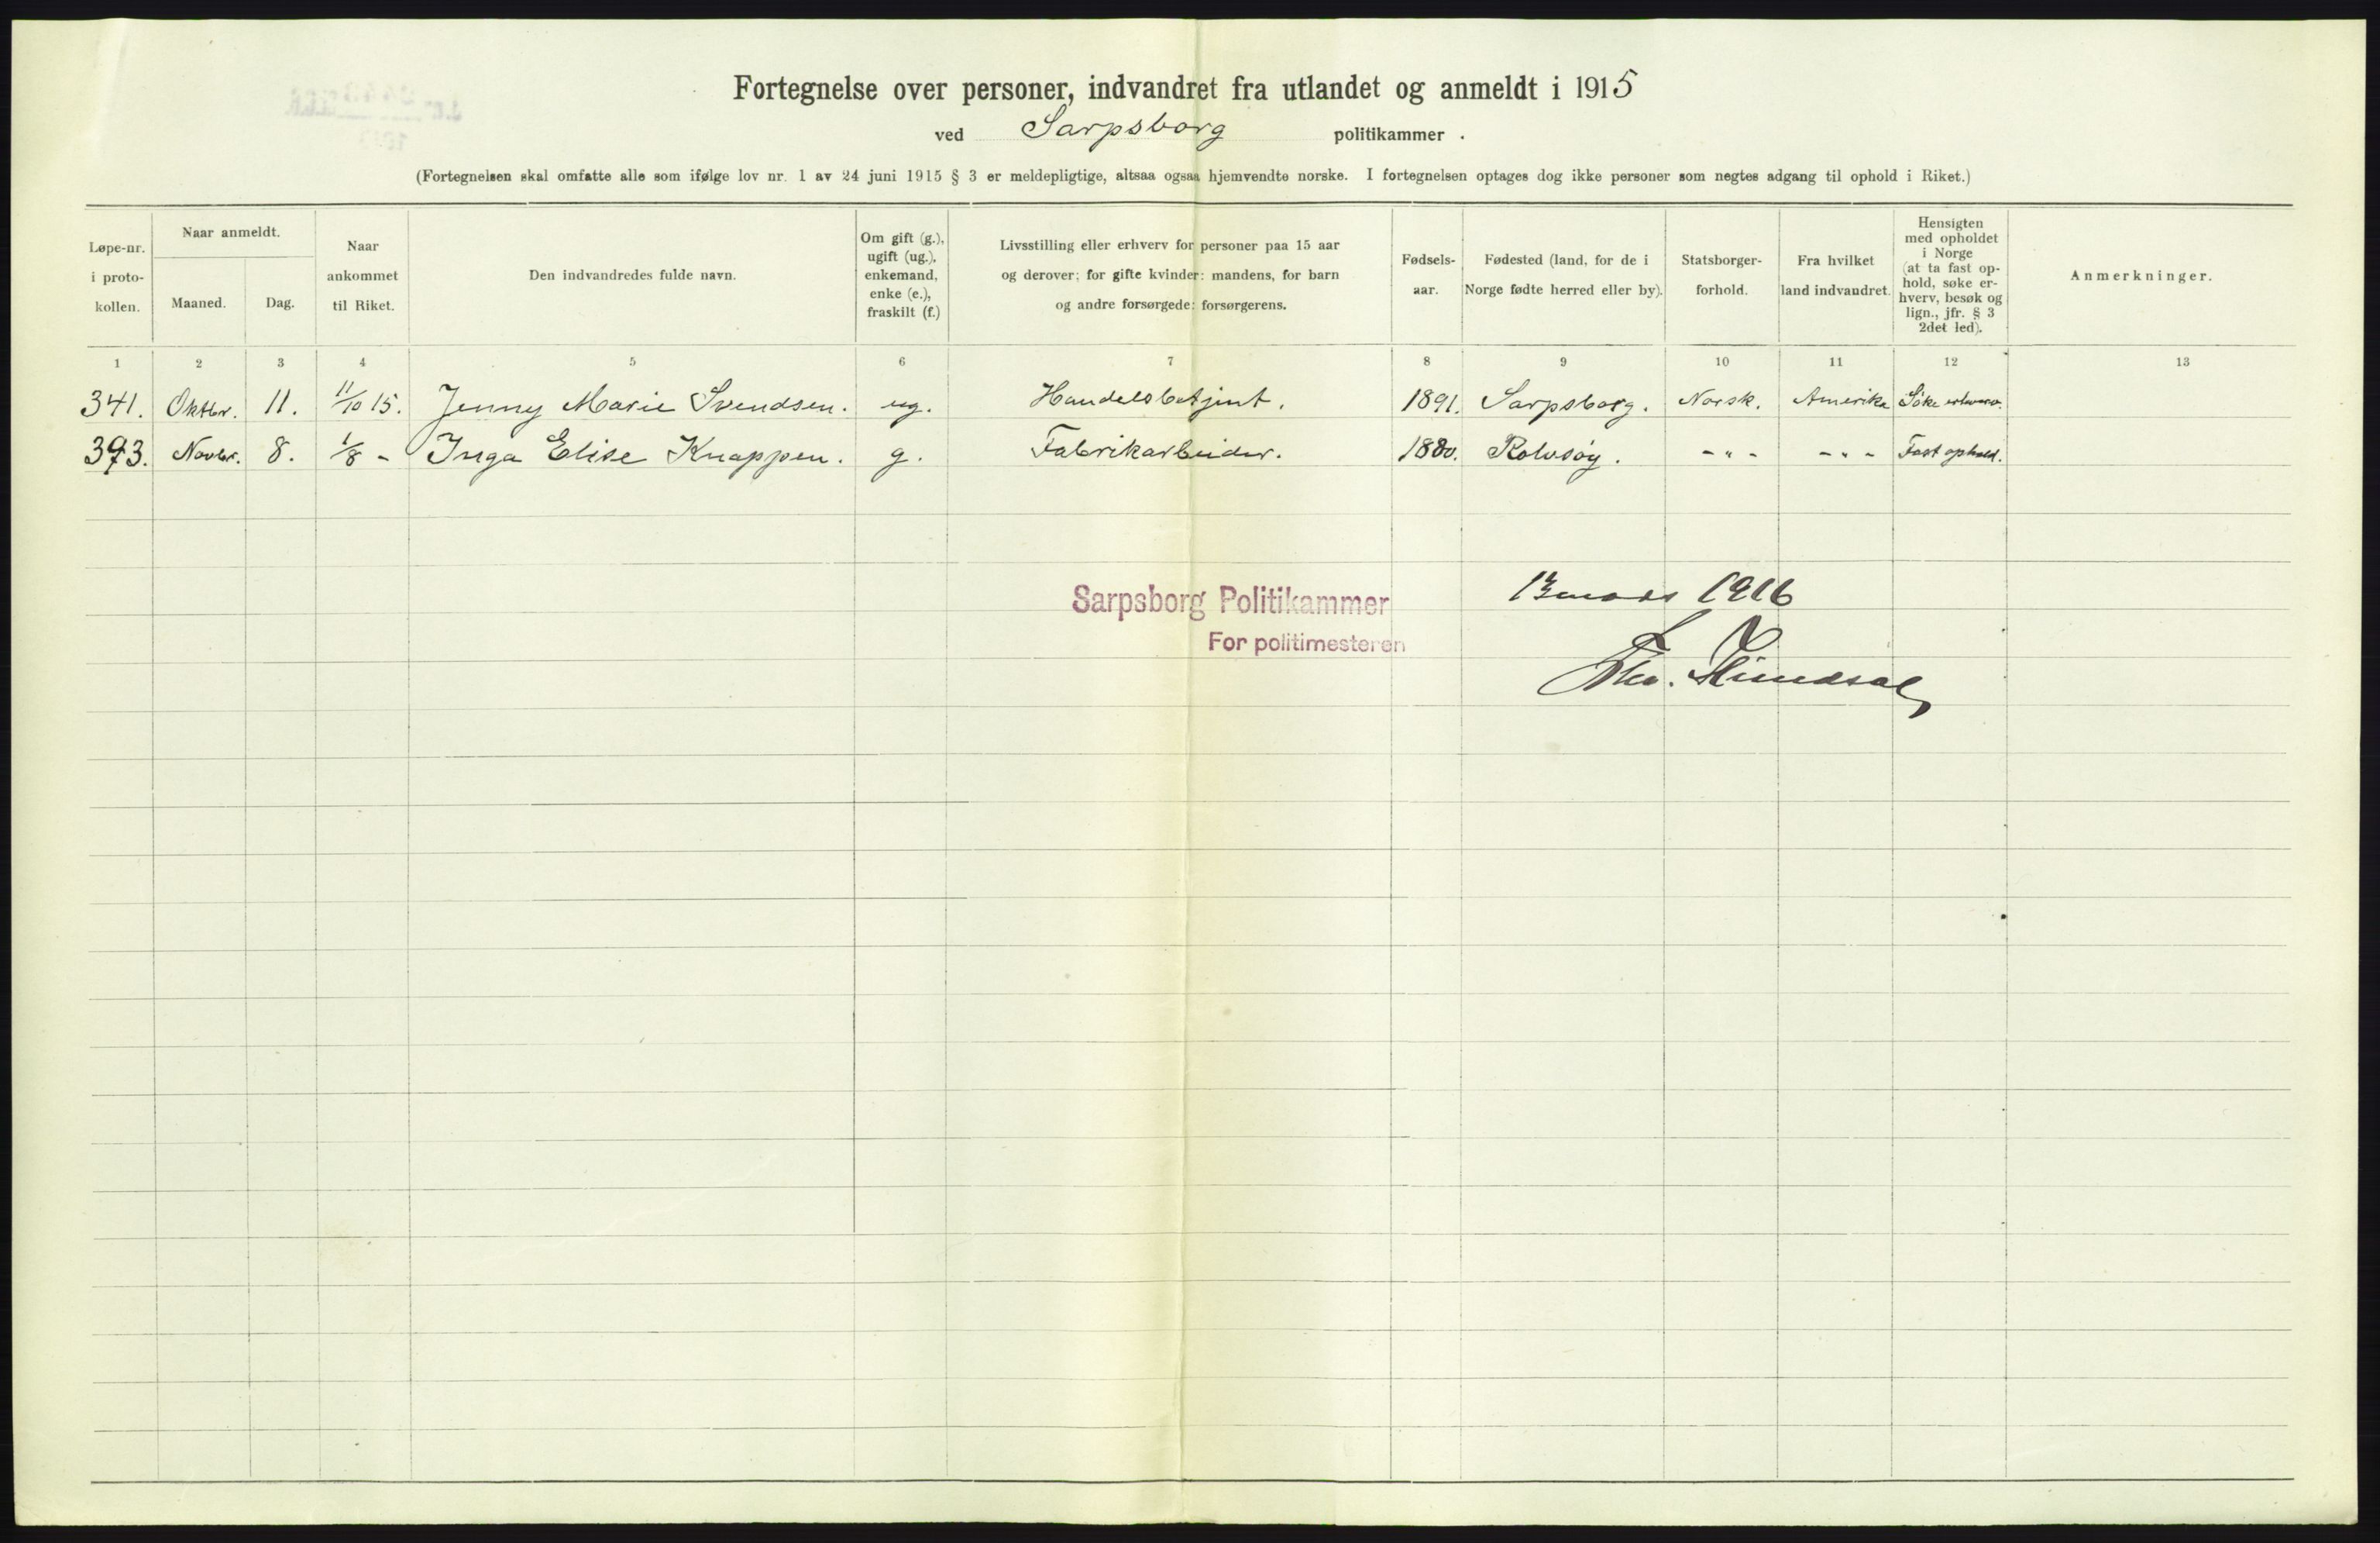 Fortegnelse over personer, indvandret fra utlandet og anmeldt i 1915
ved Sarpsborg politikammer.
(Fortegnelsen skal omfatte alle som ifølge lov nr. 1 av 24 juni 1915 § 3 er meldepligtige, altsaa ogsaa hjemvendte norske. I fortegnelsen optages dog ikke personer som negtes adgang til ophold i Riket.)
Løpe-nr.
i proto-
kollen.
Naar anmeldt.
Maaned.
Dag.
Naar
ankommet
til Riket.
Den indvandredes fulde navn.
Om gift (g.),
ugift (ug.),
enkemand,
enke (e.),
fraskilt (f.)
Livsstilling eller erhverv for personer paa 15 aar
og derover; for gifte kvinder: mandens, for barn
og andre forsørgede: forsørgerens.
Fødsels-
aar.
Fødested (land, for de i
Norge fødte herred eller by).
Statsborger-
forhold.
Fra hvilket
land indvandret.
Hensigten
med opholdet
i Norge
(at ta fast op-
hold, søke er-
hverv, besøk og
lign., jfr. § 3
2det led).
Anmerkninger.
1 2 3 4 5 6 7 8 9 10 11 12 13
341. Oktbr. 11. 11/10 15. Jenny Marie Svendsen. ug. Handelsbetjent. 1891. Sarpsborg. Norsk. Amerika Söke erhverv.
393. Novbr. 8. 1/8 - Inga Elise Knappen. g. Fabrikarbeider. 1880. Rolvsöy. - " - - " - Fast ophold.
Sarpsborg Politikammer 13 mars 1916
For politimesteren